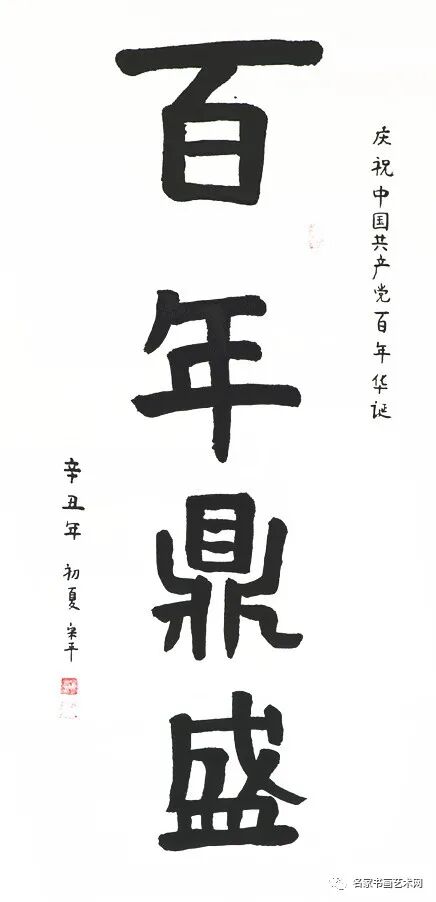 庆祝中国共产党百年华诞
百年鼎盛
辛丑年 初夏 宋平
名家书画艺术网